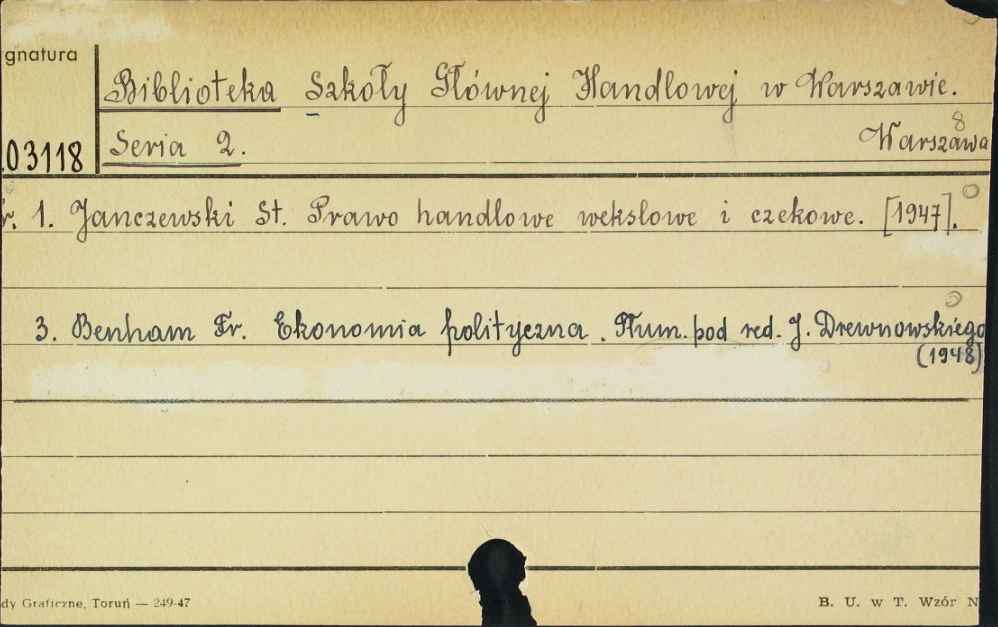 gnatura
Biblioteka Szkoły Głównej Handlowej w Warszawie.
8
03118 Seria 2. Warszawa
r. 1. Janczewski St. Prawo handlowe wekslowe i czekowe. [1947].
3. Benham Fr. Ekonomia polityczna. Tłum. pod red. J. Drewnowskiego
(1948)
dy Graficzne, Toruń — 249-47 B. U. w T. Wzór N